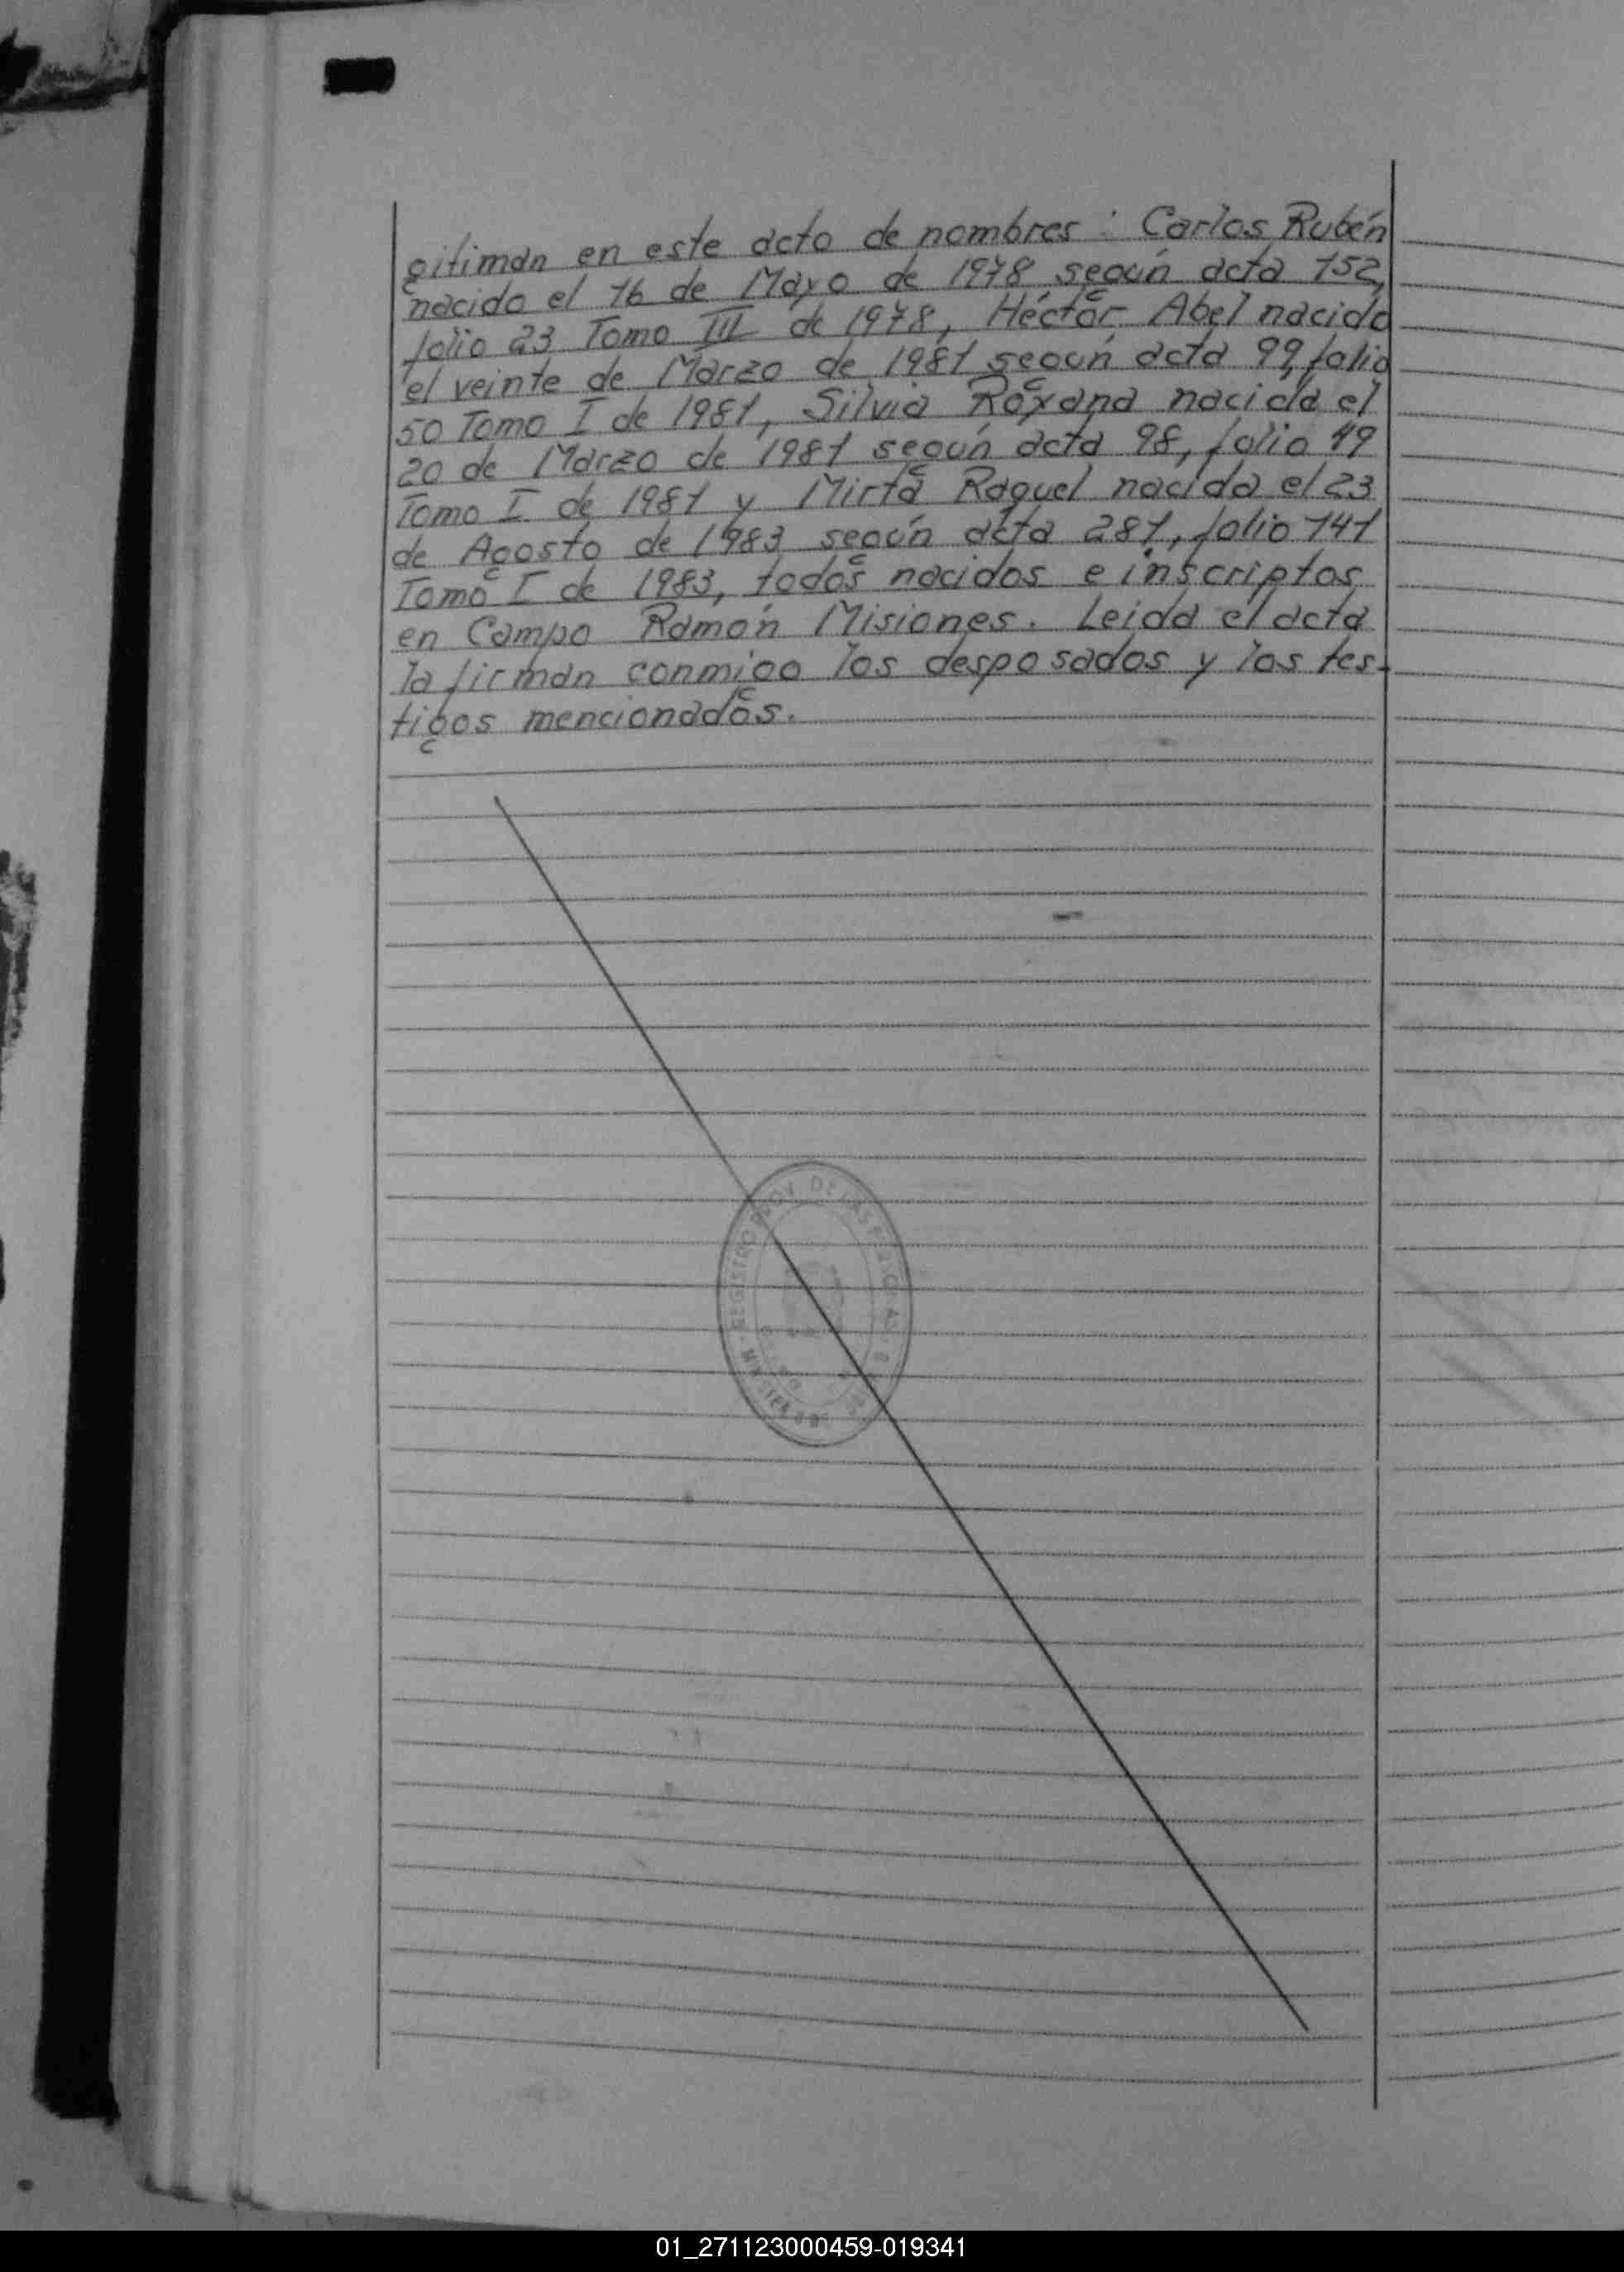 gitiman en este acto de nombres : Carlos Rubén
nacido el 16 de Mayo de 1978 según acta 152,
folio 23 Tomo III de 1978, Héctor Abel nacido
el veinte de Marzo de 1981 según acta 99, folio
50 Tomo I de 1981, Silvia Roxana nacida el
20 de Marzo de 1981 según acta 98, folio 49
Tomo I de 1981 y Mirta Raquel nacida el 23
de Agosto de 1983 según acta 281, folio 141
Tomo I de 1983, todos nacidos e inscriptos
en Campo Ramón Misiones. Leida el acta
la firman conmigo los desposados y los tes-
tigos mencionados.
REGISTRO PROV. DE LAS PERSONAS
MISIONES
01_271123000459-019341